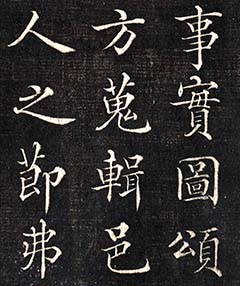 事實圖頌
方蒐輯邑
人之莭弗